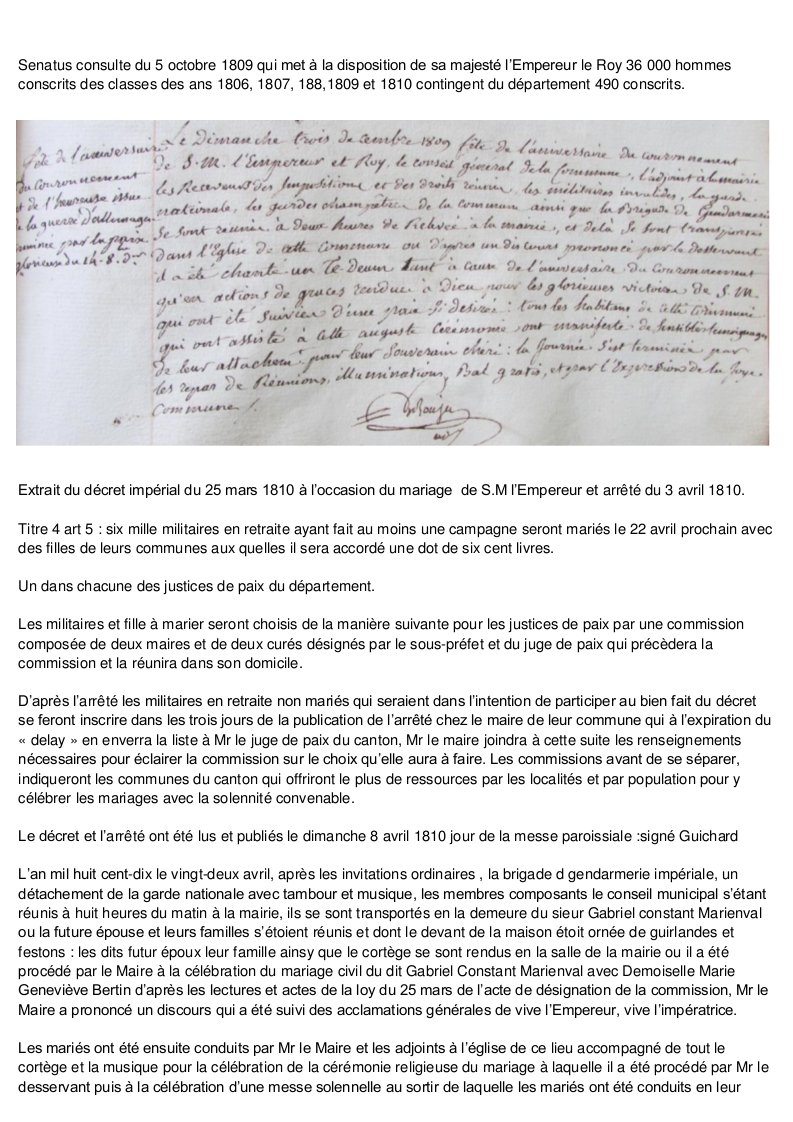 Senatus consulte du 5 octobre 1809 qui met à la disposition de sa majesté l'Empereur le Roy 36 000 hommes
conscrits des classes des ans 1806, 1807, 188,1809 et 1810 contingent du département 490 conscrits.
fête de l'anniversaire
du couronnement
et de l'heureuse issue
de la guerre d'allemagne
terminée par la paix
glorieuse du 14 8.bre
Le Dimanche trois decembre 1809 fête de l'anniversaire du couronnement
de S.M. l'Empereur et Roy, le conseil général de la Commune, l'adjoint à la mairie
les Receveurs des Impositions et des droits reunis, les militaires invalides, la garde
nationale, les gardes champêtres de la commune ainsi que la Brigade de Gendarmerie
se sont reunis a deux heures de Relevée à la mairie, et delà se sont transportés
dans l'Eglise de cette Commune ou d'après un discours prononcé par le desservant
il a été chanté un Te Deum tant à cause de l'anniversaire du Couronnement
qu'en actions de graces rendues à Dieu pour les glorieuses victoires de S.M.
qui ont été suivies d'une paix si desirée : tous les habitans de cette Commune
qui ont assisté à cette auguste Cérémonie ont manifesté de sensibles temoignages
de leur attachemt. pour leur Souverain chéri : la Journée s'est terminée par
les repas de Réunions, illuminations, Bal gratis, et par l'Expression de la Joye
Commune /.
Extrait du décret impérial du 25 mars 1810 à l'occasion du mariage  de S.M l'Empereur et arrêté du 3 avril 1810.
Titre 4 art 5 : six mille militaires en retraite ayant fait au moins une campagne seront mariés le 22 avril prochain avec
des filles de leurs communes aux quelles il sera accordé une dot de six cent livres.
Un dans chacune des justices de paix du département.
Les militaires et fille à marier seront choisis de la manière suivante pour les justices de paix par une commission
composée de deux maires et de deux curés désignés par le sous-préfet et du juge de paix qui précèdera la
commission et la réunira dans son domicile.
D'après l'arrêté les militaires en retraite non mariés qui seraient dans l'intention de participer au bien fait du décret
se feront inscrire dans les trois jours de la publication de l'arrêté chez le maire de leur commune qui à l'expiration du
« delay » en enverra la liste à Mr le juge de paix du canton, Mr le maire joindra à cette suite les renseignements
nécessaires pour éclairer la commission sur le choix qu'elle aura à faire. Les commissions avant de se séparer,
indiqueront les communes du canton qui offriront le plus de ressources par les localités et par population pour y
célébrer les mariages avec la solennité convenable.
Le décret et l'arrêté ont été lus et publiés le dimanche 8 avril 1810 jour de la messe paroissiale :signé Guichard
L'an mil huit cent-dix le vingt-deux avril, après les invitations ordinaires , la brigade d gendarmerie impériale, un
détachement de la garde nationale avec tambour et musique, les membres composants le conseil municipal s'étant
réunis à huit heures du matin à la mairie, ils se sont transportés en la demeure du sieur Gabriel constant Marienval
ou la future épouse et leurs familles s'étoient réunis et dont le devant de la maison étoit ornée de guirlandes et
festons : les dits futur époux leur famille ainsy que le cortège se sont rendus en la salle de la mairie ou il a été
procédé par le Maire à la célébration du mariage civil du dit Gabriel Constant Marienval avec Demoiselle Marie
Geneviève Bertin d'après les lectures et actes de la loy du 25 mars de l'acte de désignation de la commission, Mr le
Maire a prononcé un discours qui a été suivi des acclamations générales de vive l'Empereur, vive l'impératrice.
Les mariés ont été ensuite conduits par Mr le Maire et les adjoints à l'église de ce lieu accompagné de tout le
cortège et la musique pour la célébration de la cérémonie religieuse du mariage à laquelle il a été procédé par Mr le
desservant puis à la célébration d'une messe solennelle au sortir de laquelle les mariés ont été conduits en leur